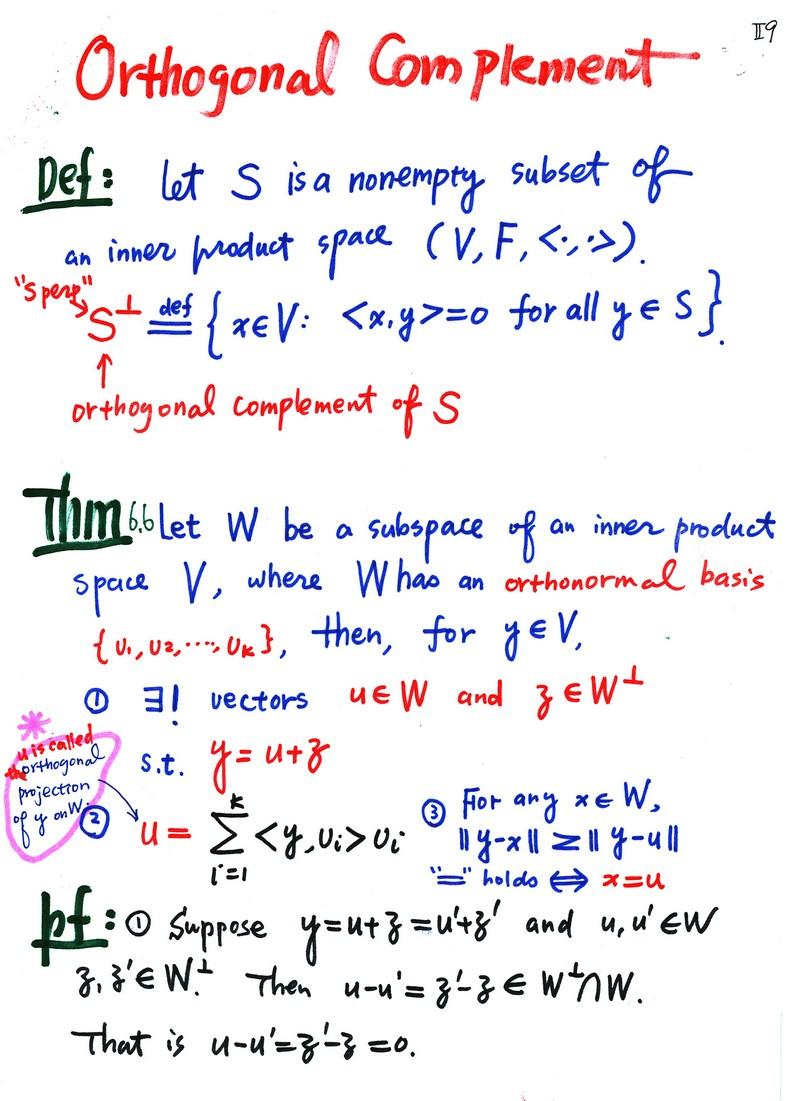 II9
Orthogonal Complement
Def: Let S is a nonempty subset of
an inner product space (V, F, <·,·>).
"S perp"
S⊥ def= { x∈V: <x,y>=0 for all y ∈ S }.
↑
orthogonal complement of S
Thm 6.6 Let W be a subspace of an inner product
space V, where W has an orthonormal basis
{υ₁, υ₂, ..., υₖ}, then, for y∈V,
① ∃! vectors u∈W and z∈W⊥
s.t. y = u+z
* u is called
the orthogonal
projection
of y on W.
② u = ∑_{i=1}^{k} <y, υᵢ> υᵢ
③ For any x∈W,
||y-x|| ≥ ||y-u||
"=" holds ⟺ x=u
pf: ① Suppose y=u+z=u'+z' and u, u' ∈W
z, z' ∈ W⊥. Then u-u' = z'-z ∈ W⊥∩W.
That is u-u'=z'-z=0.